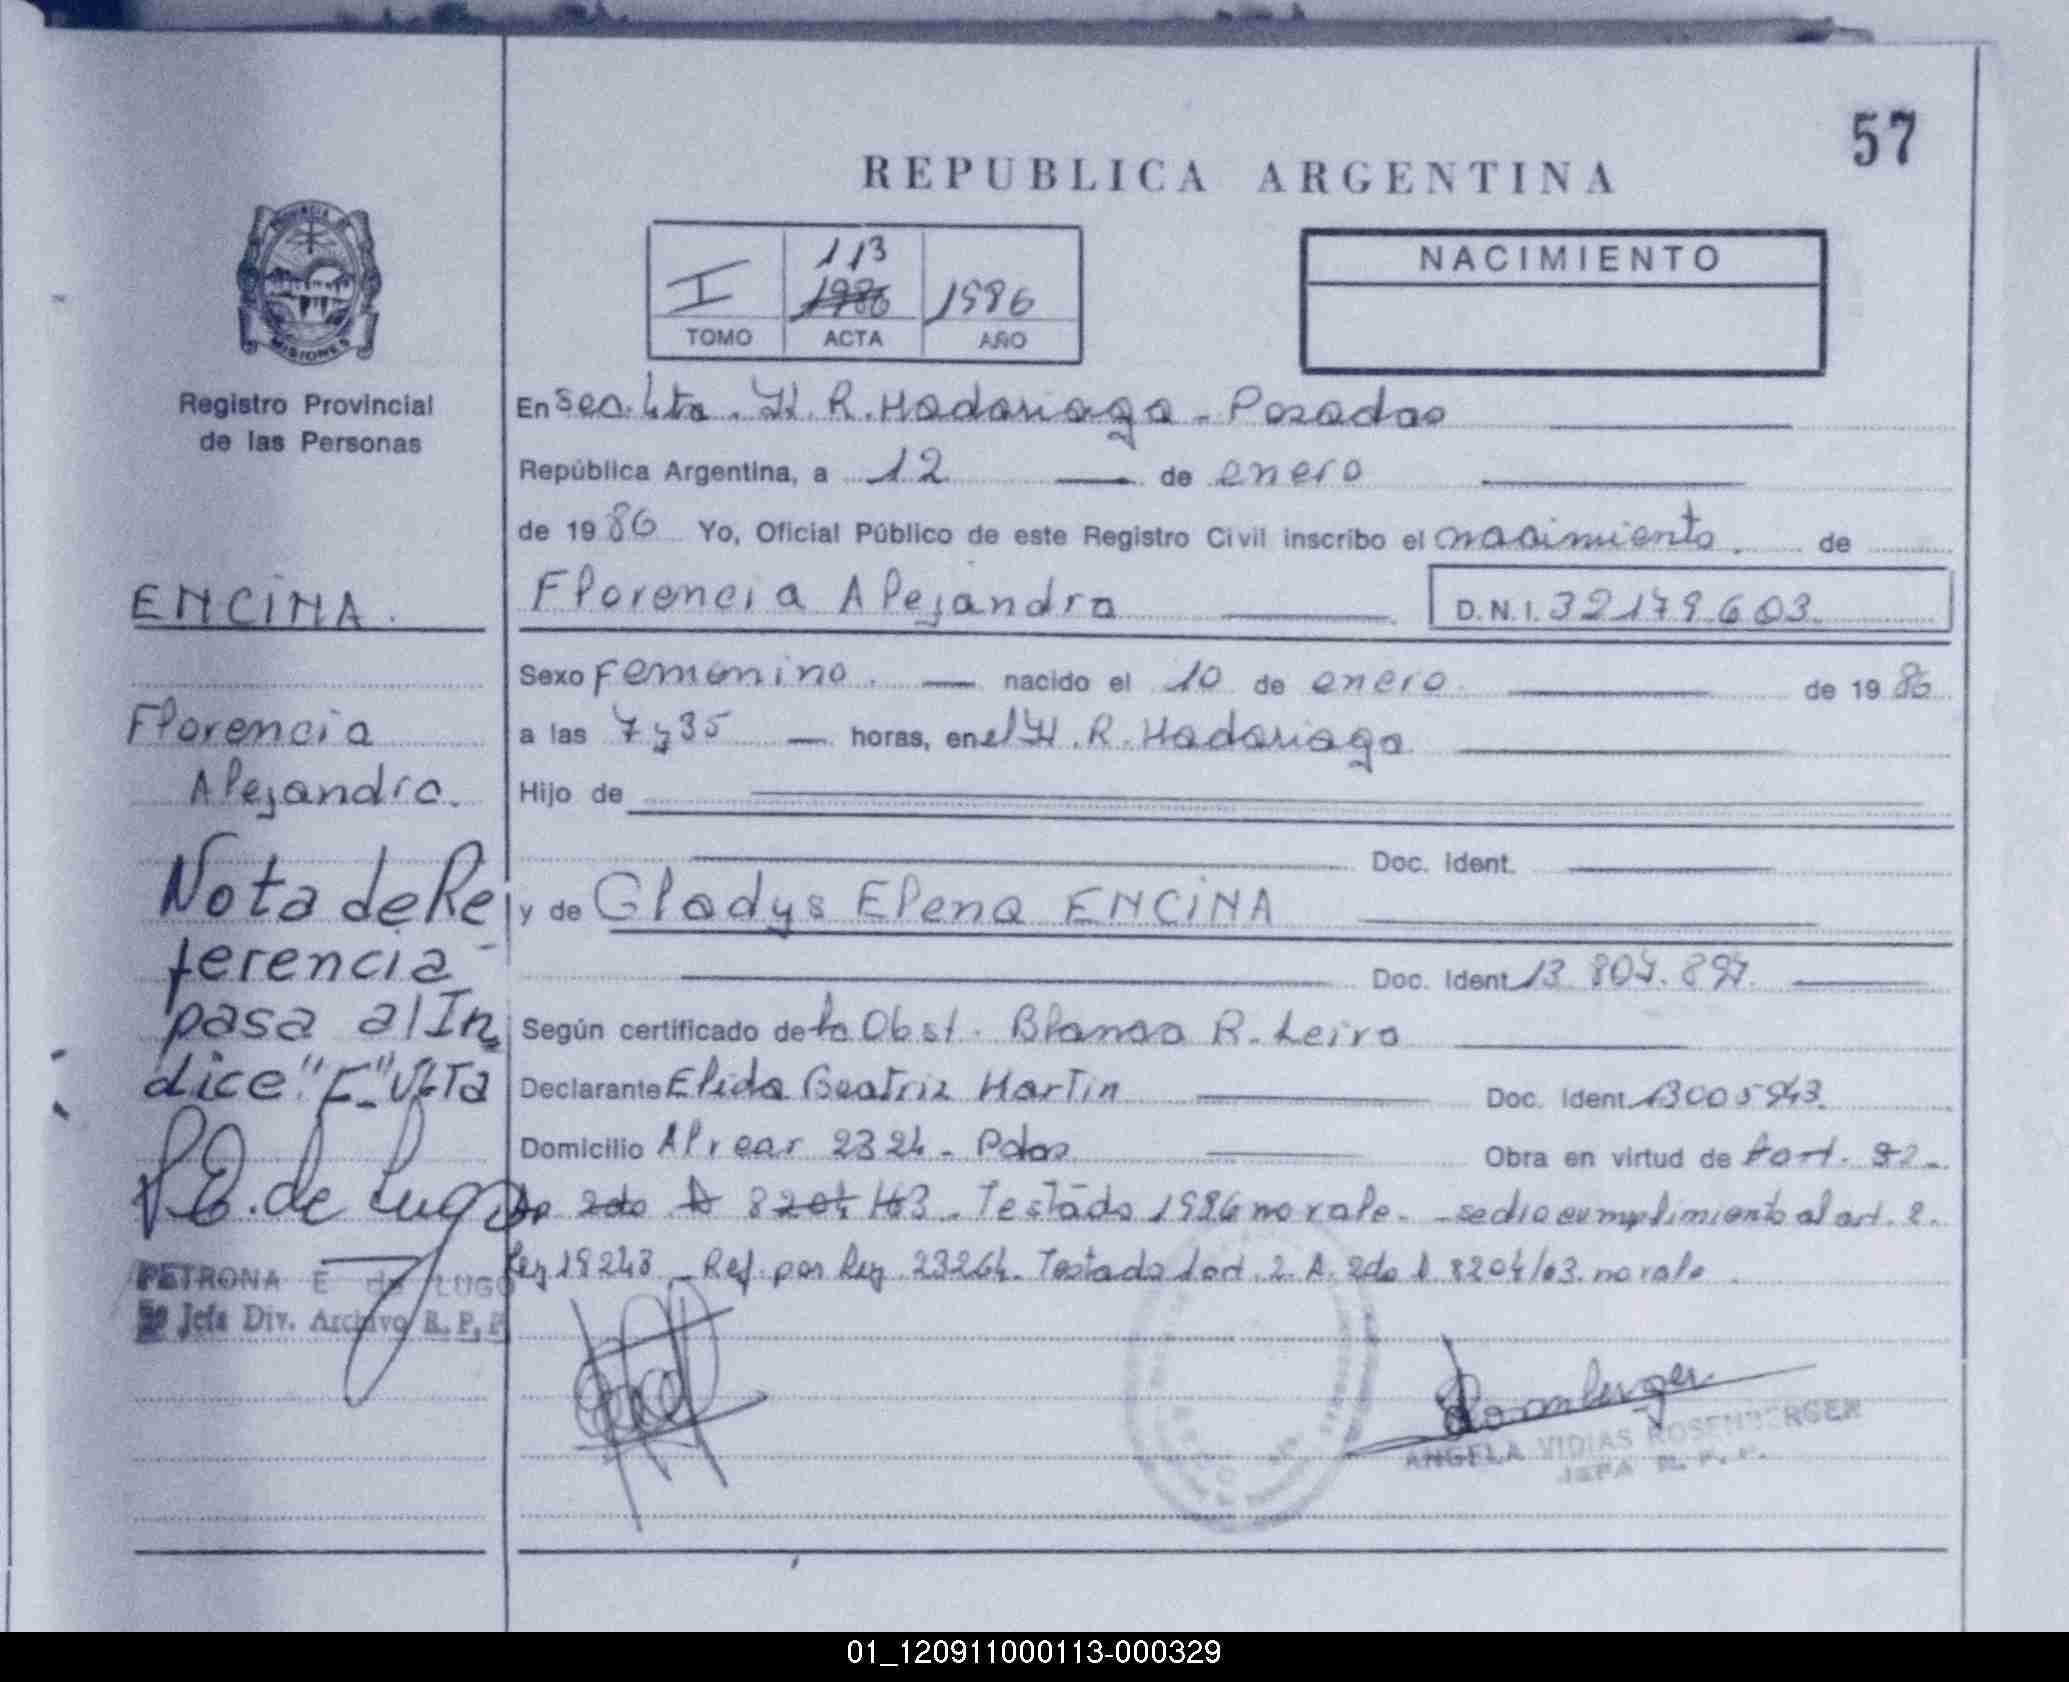 57
REPUBLICA ARGENTINA
PROVINCIA DE
MISIONES
Registro Provincial
de las Personas
113
I 1986 1986
TOMO ACTA AÑO
NACIMIENTO
En Sec. 4ta. H. R. Madariaga - Posadas
República Argentina, a 12 de enero
de 1986 Yo, Oficial Público de este Registro Civil inscribo el nacimiento. de
Florencia Alejandra D.N.I. 32179.603.
ENCINA.
Florencia
Alejandra.
Sexo Femenino. nacido el 10 de enero. de 1986
a las 7 y 35 horas, en el H. R. Madariaga
Hijo de
Doc. Ident.
y de Gladys Elena ENCINA
Doc. Ident 13.807.897.
Según certificado de la Obst. Blanca R. Leiva
Declarante Elida Beatriz Martin Doc. Ident 13005943.
Domicilio Alvear 2324 - Pdas Obra en virtud de
2do 8204/63. Testado 1986 no vale. - se dio cumplimiento al art. 2.
Ley 18248 - Ref. por Ley 23264. Testado 1 art. 2. A. 2do 8204/63. no vale.
Nota de Re
ferencia
pasa al In
dice "E" Vta
P.E. de Lugo
PETRONA E de LUGO
Jefa Div. Archivo R.P.P
Rosenberger
ANGELA VIDIAS ROSENBERGER
JEFA R. P. P.
01_120911000113-000329